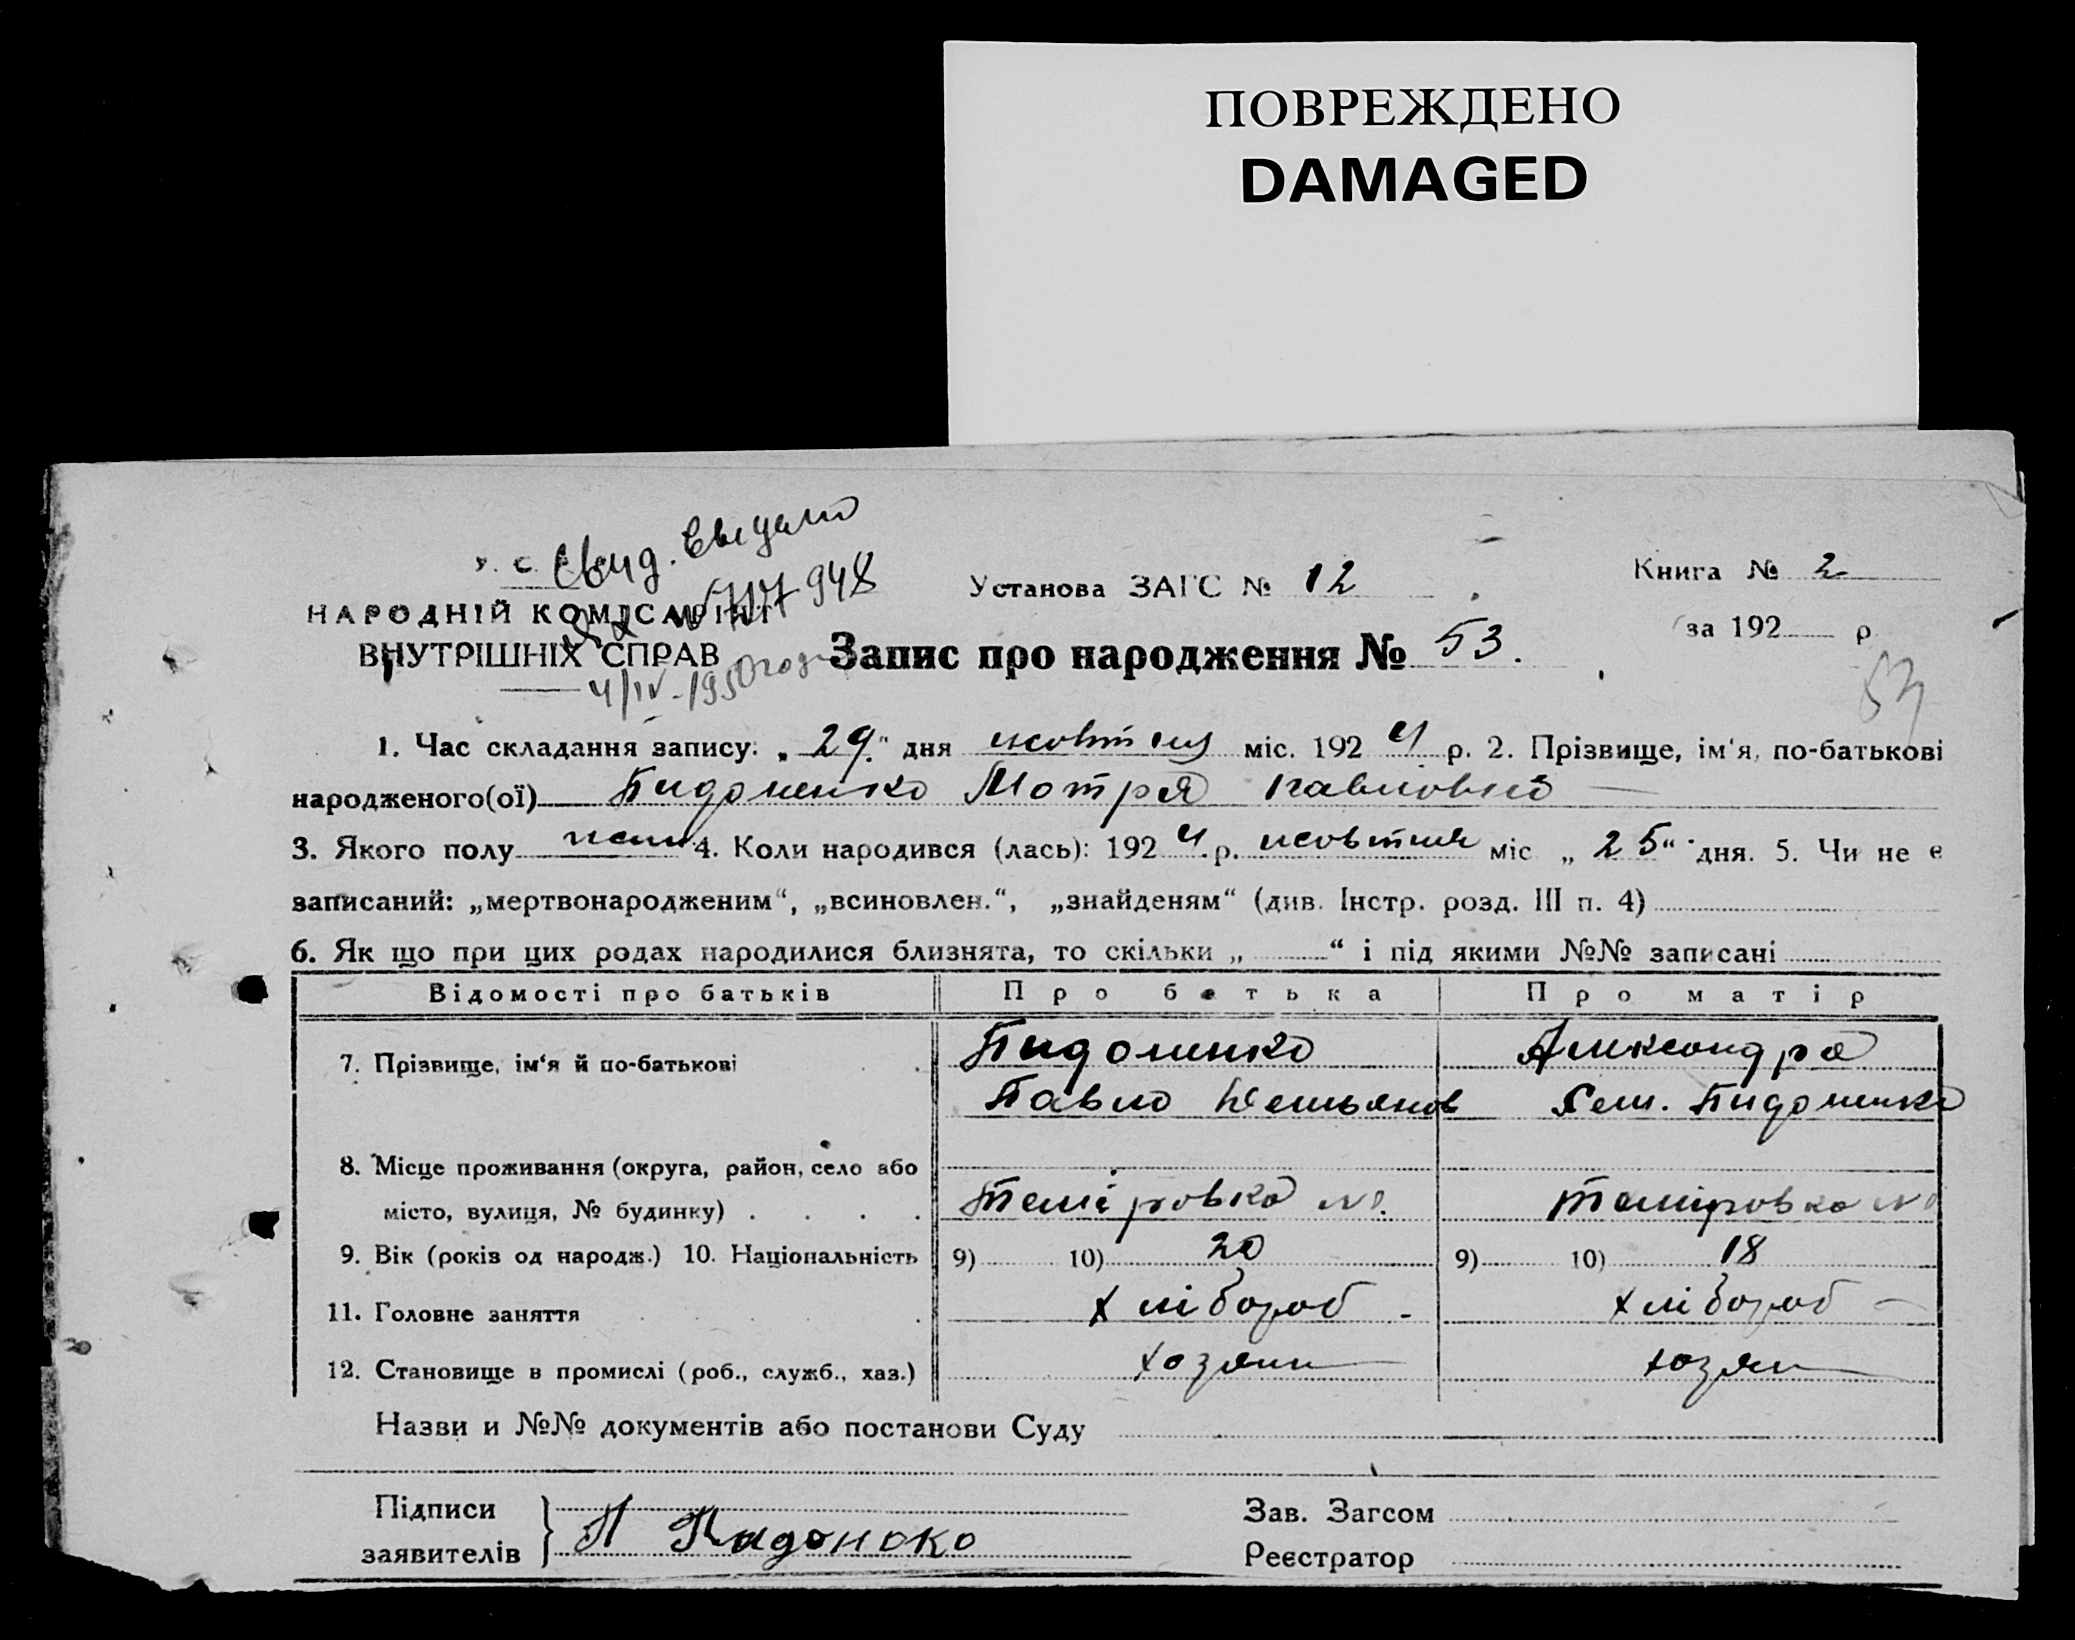 ПОВРЕЖДЕНО
DAMAGED
У. С.
Свид. выдано
948
НАРОДНІЙ КОМІСАРІЯТ
ВНУТРІШНІХ СПРАВ
4/IV-1950 года
Установа ЗАГС № 12
Книга № 2
за 192 р.
Запис про народження № 53.
53
1. Час складання запису: „29“ дня жовтня міс. 1924 р. 2. Прізвище, ім'я, по-батькові
народженого(ої) Пидоненко Мотря Павловна
3. Якого полу жен. 4. Коли народився (лась): 1924 р. жовтня міс „25“ дня. 5. Чи не є
записаний: „мертвонародженим“, „всиновлен.“, „знайденям“ (див. Інстр. розд. III п. 4)
6. Як що при цих родах народилися близнята, то скільки „ “ і під якими №№ записані
Відомості про батьків Про батька Про матір
7. Прізвище, ім'я й по-батькові Пидоненко Александра
Павло Демьянов Сем. Пидоненко
8. Місце проживання (округа, район, село або
місто, вулиця, № будинку) Теміровка № Темировка №
9. Вік (років од народж.) 10. Національність 9) 10) 20 9) 10) 18
11. Головне заняття Хлібороб - Хлібороб -
12. Становище в промислі (роб., служб., хаз.) хозяин хозяин
Назви и №№ документів або постанови Суду
Підписи
заявителів П Пидоноко
Зав. Загсом
Реєстратор